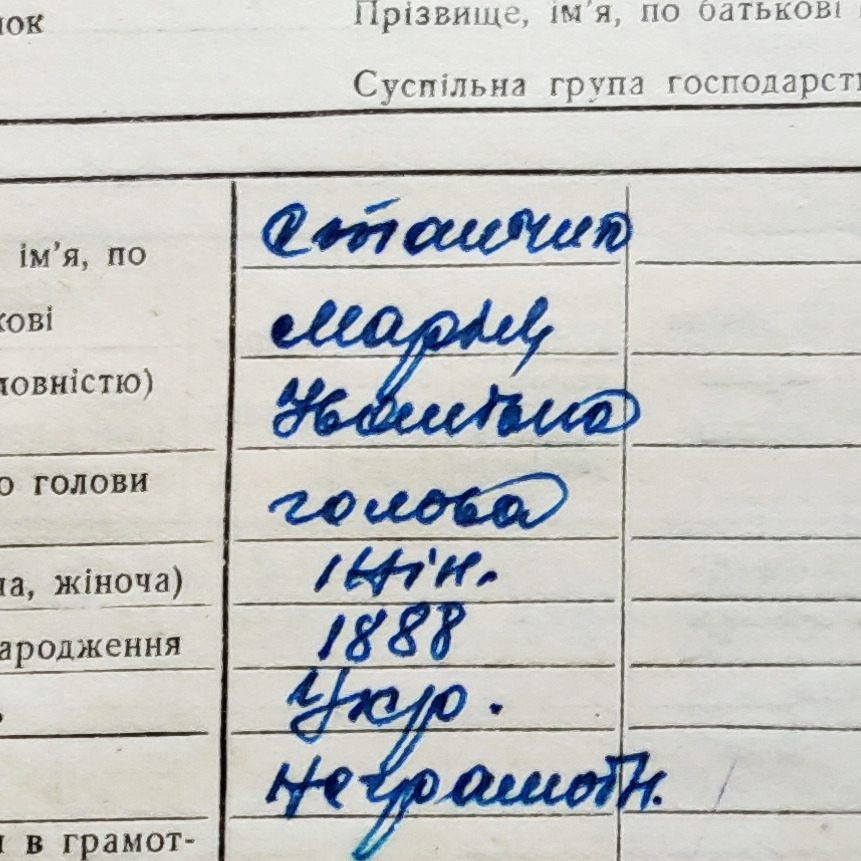 нок Прізвище, ім'я, по батькові
Суспільна група господарст
ім'я, по
кові Марія
повністю) Іванівна
о голови голова
на, жіноча) жін.
народження 1888
Укр.
неграмотн.
в грамот-